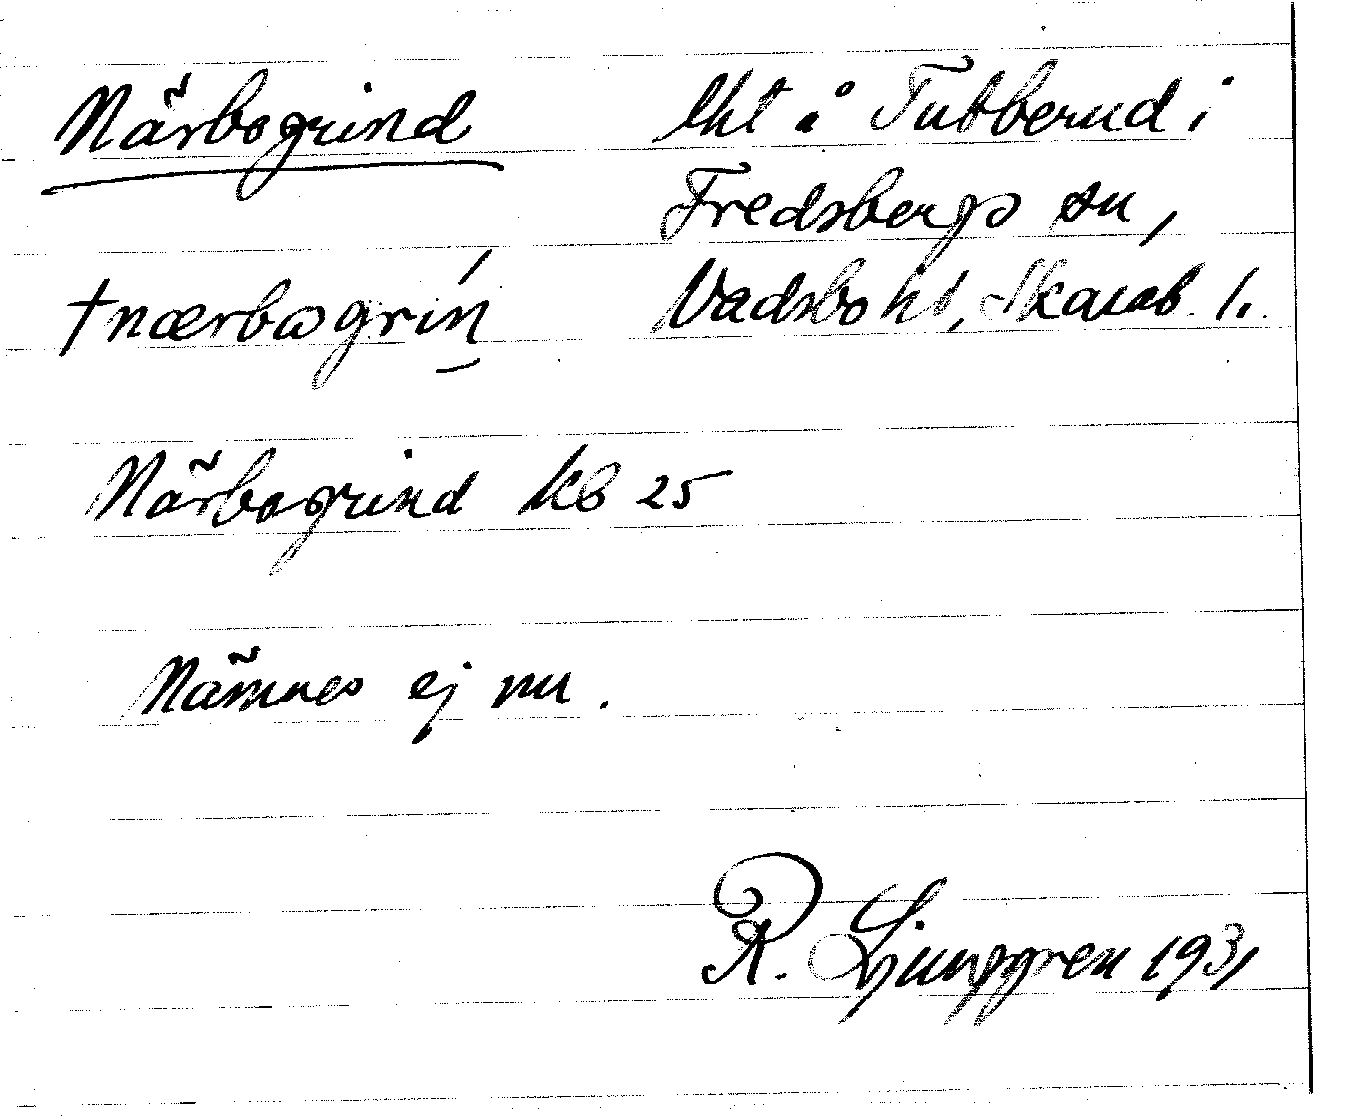 Närbogrind
lht å Tubberud i
Fredsbergs sn,
Vadsbo hd, Skarab. l.
†nærbogrin
Närbogrind kb 25
Nämnes ej nu.
R. Ljunggren 1931